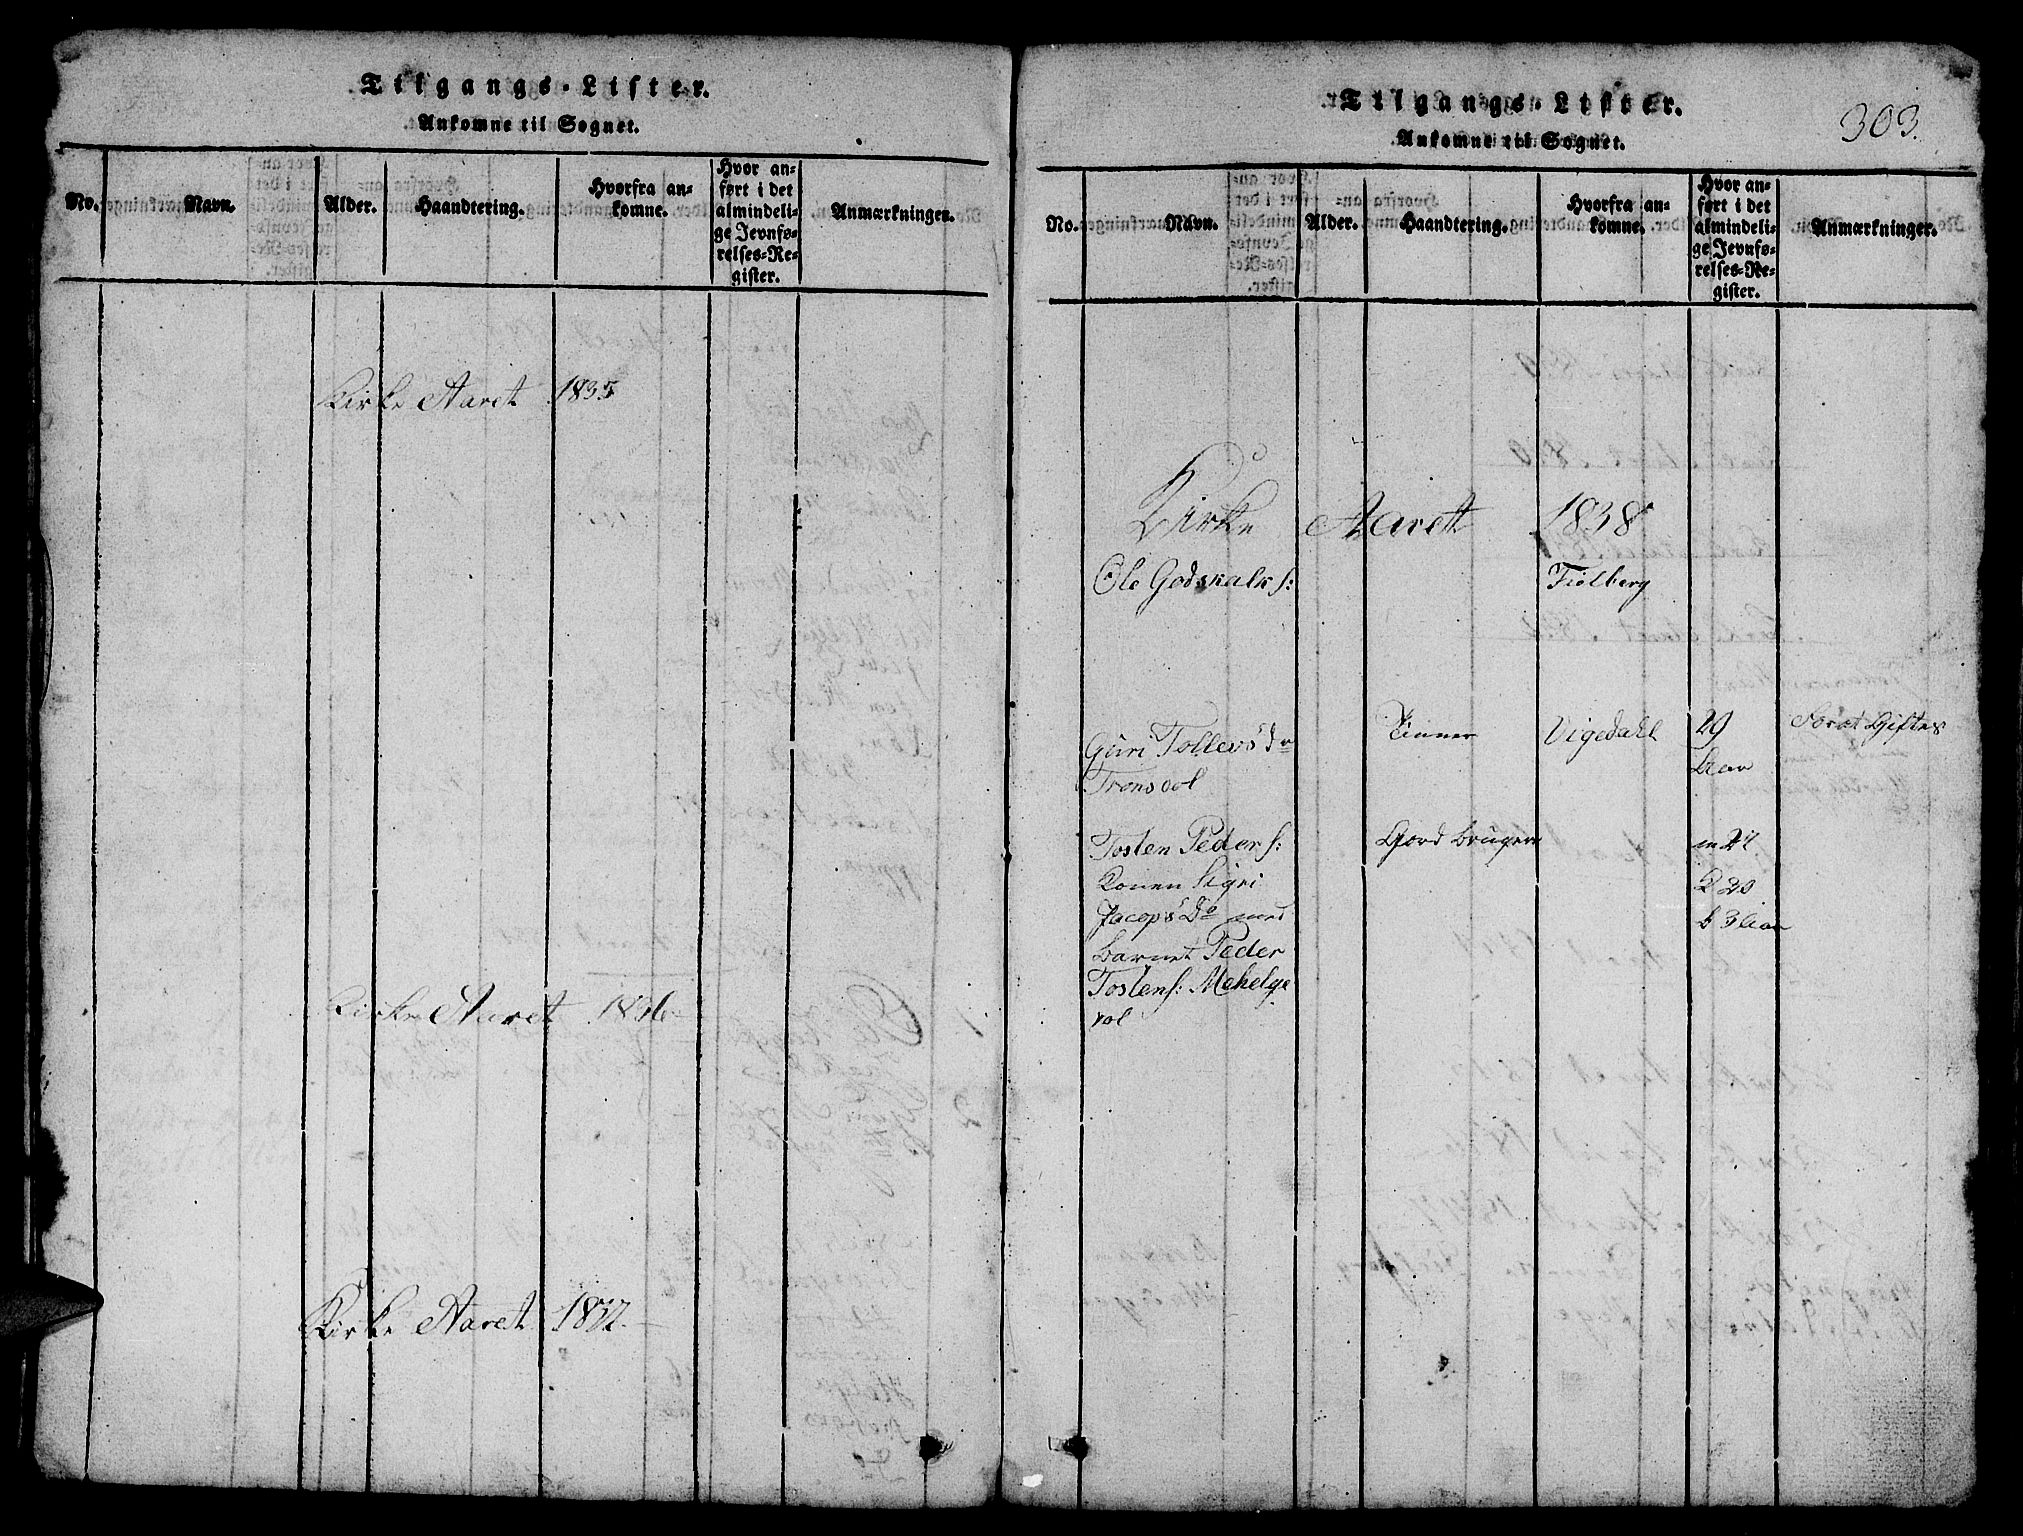 Tilgangs-Lister.
Ankomne til Sognet.
No.
Navn.
Alder.
Haandtering.
Hvorfra an=
komne.
Hvor an=
ført i det
almindeli=
ge Jevnfø=
relses=Re=
gister.
Anmærkninger.
Kirke Aaret 1835
Kirke Aaret 1836
Kirke Aaret 1837
Tilgangs-Lister.
Ankomne til Sognet.
303.
No.
Navn.
Alder.
Haandtering.
Hvorfra an=
komne.
Hvor an=
ført i det
almindeli=
ge Jevnfø=
relses=Re=
gister.
Anmærkninger.
Kirke Aaret 1838
Ole Godskalk s: Fiølberg
Guri Tollevs Dr Tinner Vigedahl 29 Giftes
Tronsvol Aar
Tosten Peder s: Gord Bruger m 27
Konen Sigri K 20
Jacops Dr med b 3 Aar
Barnet Peder
Tostens: Mehelge
vol